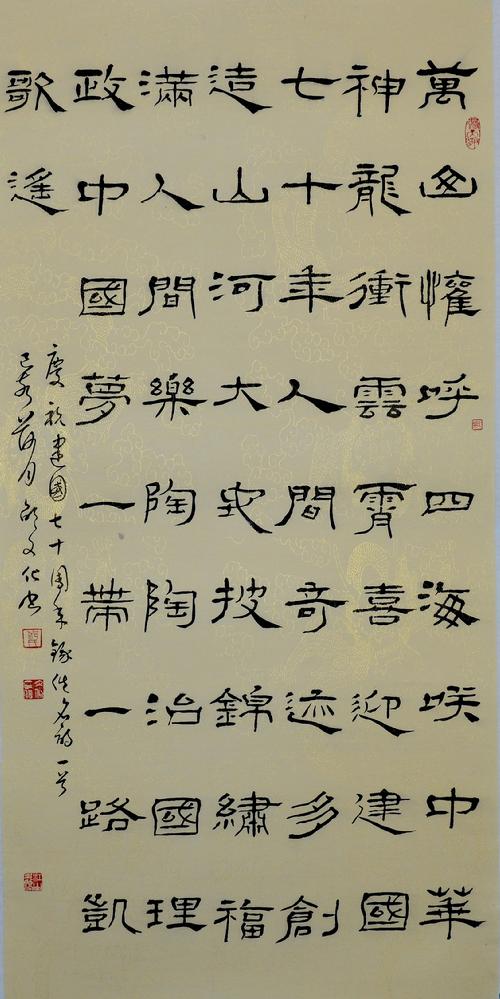 萬懽呼四海咲中華
神龍衝雲霄喜迎建國
七十年人間奇迹多創
造山河大地披錦繡福
滿人間樂陶陶治國理
政中國夢一帶一路凱
歌遥
慶祝建國七十周年錄佚名詩一首
己亥荷月文化书